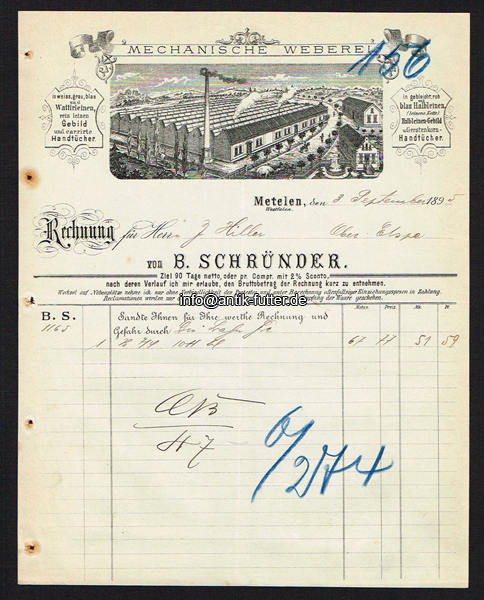 MECHANISCHE WEBEREI
156
in weiss, grau, blau
und
Wattirleinen,
rein leinen
Gebild
und carrirte
Handtücher.
in gebleicht, roh
u.
blau Halbleinen,
(leinene Kette)
Halbleinen-Gebild
u. Gerstenkorn-
Handtücher.
Metelen, den 3 September 1895
Westfalen.
Rechnung für Herrn J. Hiller Ober-Elspe
von B. SCHRÜNDER.
Ziel 90 Tage netto, oder pr. Compt. mit 2% Sconto,
nach deren Verlauf ich mir erlaube, den Bruttobetrag der Rechnung kurz zu entnehmen.
Wechsel auf Nebenplätze nehme ich nur ohne Verbindlichkeit des Protestes und unter Berechnung allenfallsiger Einziehungsspesen in Zahlung.
Reclamationen werden nur
Empfang der Waare geschehen.
info@antik-futter.de
B. S.
1165
Sandte Ihnen für Ihre werthe Rechnung und
Gefahr durch
Meter. Preis. Mk. Pf.
1 67 77 51 59
47
6/274